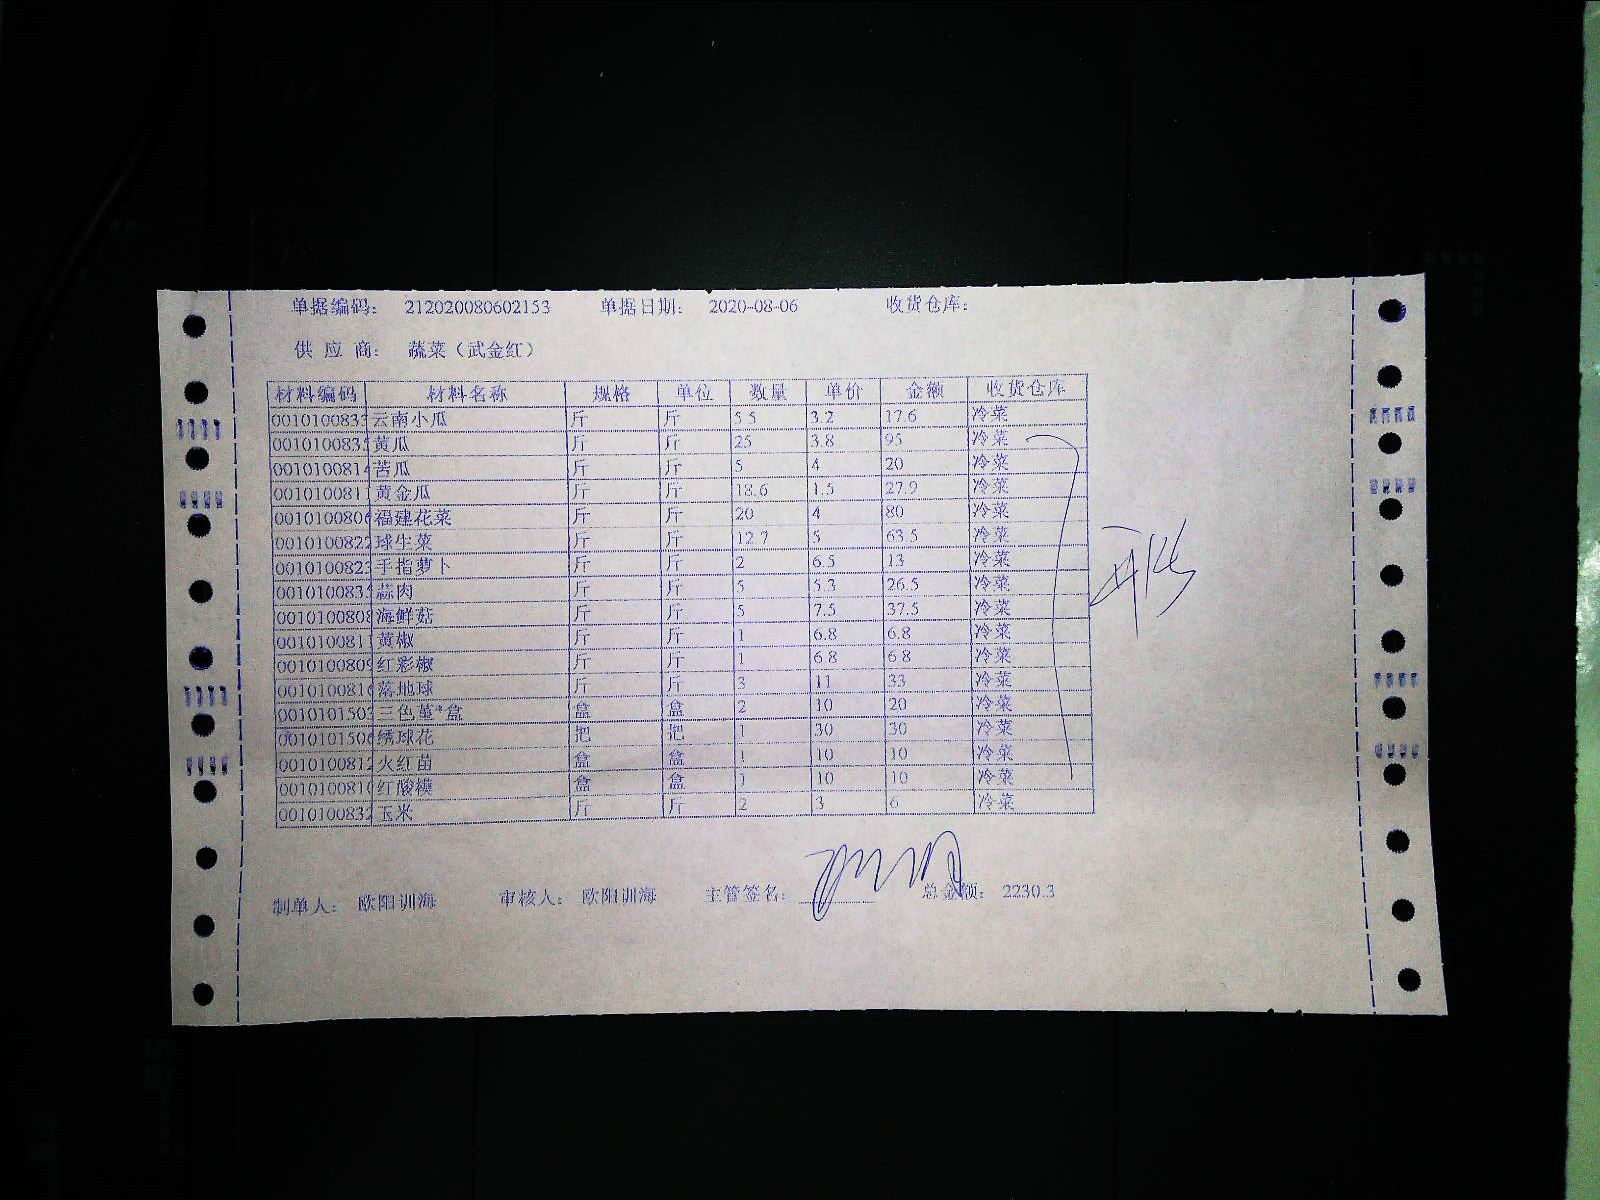 单据编码： 212020080602153 单据日期： 2020-08-06 收货仓库：
供 应 商： 蔬菜（武金红）
材料编码 材料名称 规格 单位 数量 单价 金额 收货仓库
0010100833 云南小瓜 斤 斤 5.5 3.2 17.6 冷菜
0010100835 黄瓜 斤 斤 25 3.8 95 冷菜
0010100814 苦瓜 斤 斤 5 4 20 冷菜
0010100811 黄金瓜 斤 斤 18.6 1.5 27.9 冷菜
0010100806 福建花菜 斤 斤 20 4 80 冷菜
0010100822 球生菜 斤 斤 12.7 5 63.5 冷菜
0010100823 手指萝卜 斤 斤 2 6.5 13 冷菜
0010100835 蒜肉 斤 斤 5 5.3 26.5 冷菜
0010100808 海鲜菇 斤 斤 5 7.5 37.5 冷菜
0010100811 黄椒 斤 斤 1 6.8 6.8 冷菜
0010100809 红彩椒 斤 斤 1 6.8 6.8 冷菜
0010100816 落地球 斤 斤 3 11 33 冷菜
0010101503 三色堇*盒 盒 盒 2 10 20 冷菜
0010101506 绣球花 把 把 1 30 30 冷菜
0010100812 火红苗 盒 盒 1 10 10 冷菜
0010100810 红酸模 盒 盒 1 10 10 冷菜
0010100832 玉米 斤 斤 2 3 6 冷菜
制单人： 欧阳训海 审核人： 欧阳训海 主管签名： 总金额： 2230.3